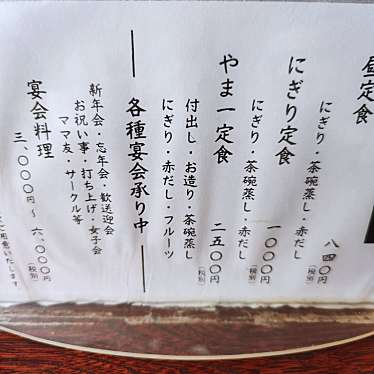 昼定食
にぎり・茶碗蒸し・赤だし
八四〇
(税別)
にぎり定食
にぎり・茶碗蒸し・赤だし
一〇〇〇
(税別)
やま一定食
付出し・お造り・茶碗蒸し
にぎり・赤だし・フルーツ
二五〇〇
(税別)
各種宴会承り中
新年会・忘年会・歓送迎会
お祝い事・打ち上げ・女子会
ママ友・サークル等
宴会料理
三、〇〇〇円～六、〇〇〇円
(税別)
用意いたします